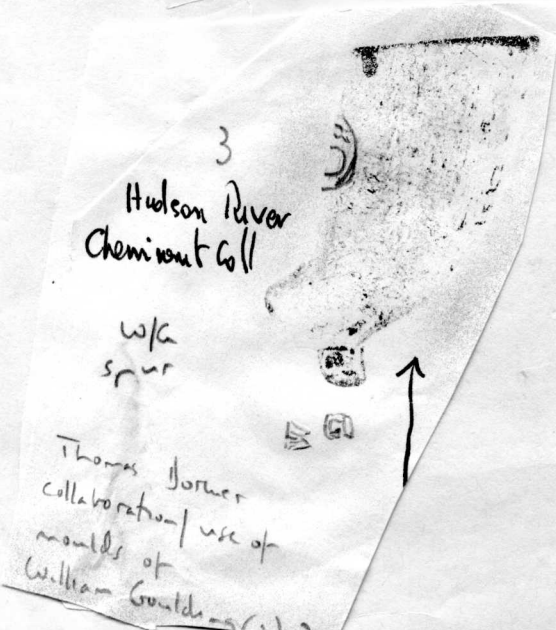 3
Hudson River
Cheminant Coll
W/G
spur
W G
Thomas Dormer
collaboration/ use of
moulds of
William Goulding